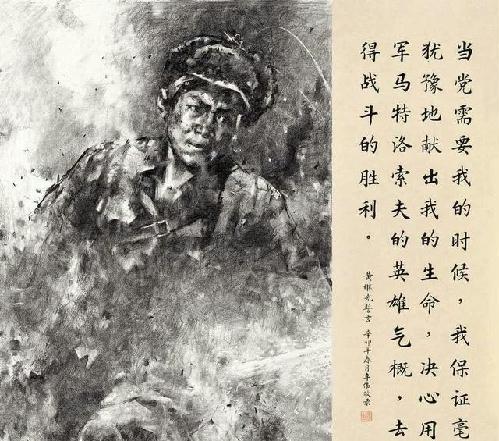 当党需要我的时候，我保证毫
犹豫地献出我的生命，决心用
军马特洛索夫的英雄气概，去
得战斗的胜利。
黄继光誓言 辛卯年春月